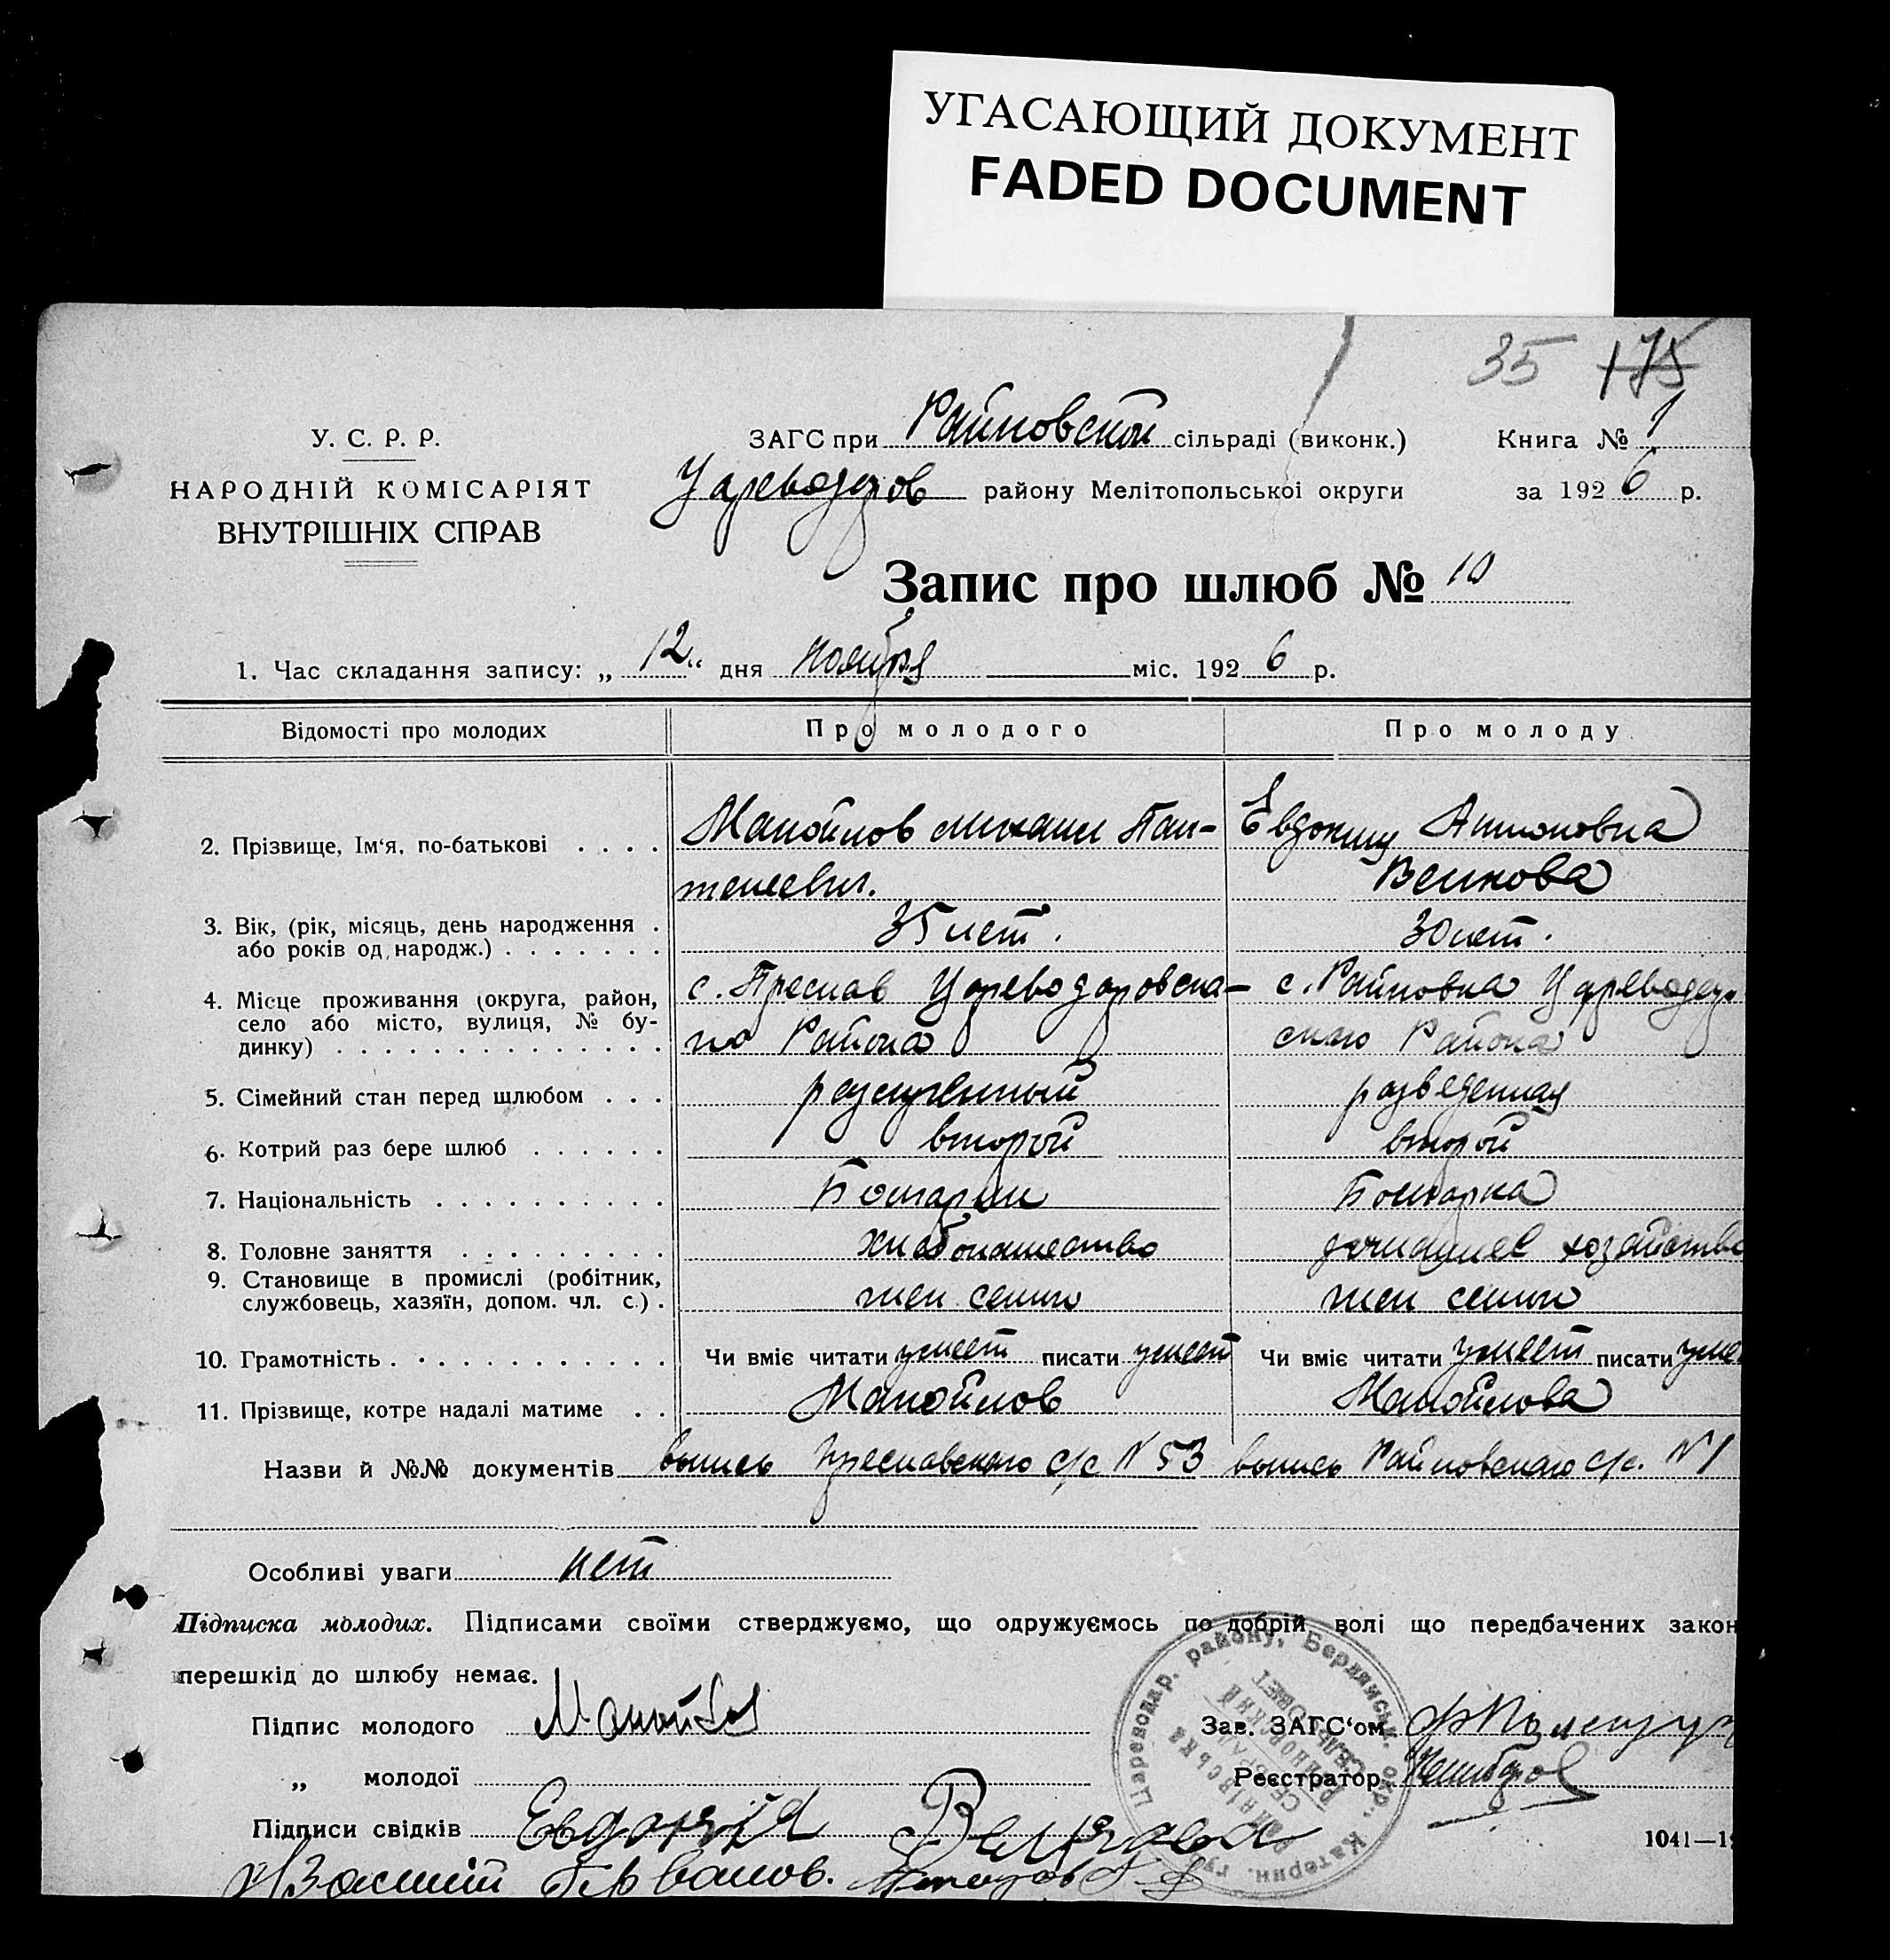 УГАСАЮЩИЙ ДОКУМЕНТ
FADED DOCUMENT
35 175
У. С. Р. Р.
НАРОДНІЙ КОМІСАРІЯТ
ВНУТРІШНІХ СПРАВ
ЗАГС при Райновской сільраді (виконк.)
Книга № 1
Цареводаров району Мелітопольської округи
за 1926 р.
Запис про шлюб № 10
1. Час складання запису: „ 12 “ дня ноября міс. 1926 р.
Відомості про молодих
Про молодого
Про молоду
2. Прізвище, Ім‘я, по-батькові . . . .
Манойлов Михаил Пан-
телеевич.
Антоновна
Велкова
3. Вік, (рік, місяць, день народження .
або років од народж.) . . . . . . .
35 лет.
30 лет.
4. Місце проживання (округа, район,
село або місто, вулиця, № бу-
динку) . . . . . . . . . . . . . .
с. Преслав Цареводаровска-
го Района
с. Райновка
ского Района
5. Сімейний стан перед щлюбом . . .
разлученный
разведенная
6. Котрий раз бере шлюб . . . . . .
второй
второй
7. Національність . . . . . . . . . .
Болгарин
Болгарка
8. Головне заняття . . . . . . . . .
хлебопашество
домашнее хозяйство
9. Становище в промислі (робітник,
службовець, хазяїн, допом. чл. с.) .
член семьи
член семьи
10. Грамотність . . . . . . . . . . . .
Чи вміє читати умеет писати умеет
Чи вміє читати умеет писати умее
11. Прізвище, котре надалі матиме . .
Манойлов
Манойлова
Назви й №№ документів выпись Преславского с/с N 53 выпись Райновского с/с. N 1
Особливі уваги нет
Підписка молодих. Підписами своїми стверджуємо, що одружуємось по добрій волі що передбачених закон
перешкід до шлюбу немає.
Підпис молодого Манойлов
Зав. ЗАГС‘ом
„ молодої
Реєстратор
Підписи свідків Евдокия Велкова
1041—19
Цареводар. району, Бердянськ. окр. Катерин. губ.
РАЙНОВСКИЙ
СЕЛЬСОВЕТ